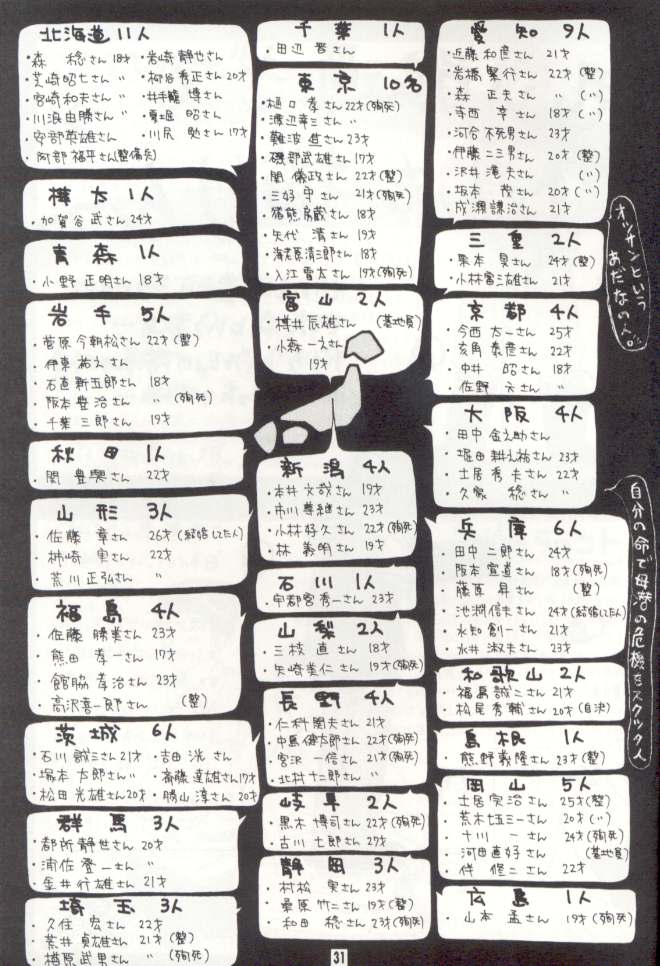 北海道 11人
・森 稔さん 18才
・岩崎静也さん
・芝崎昭七さん 〃
・柳谷秀正さん 20才
・宮崎和夫さん 〃
・井手籠 博さん
・川浪由勝さん 〃
・夏堀 昭さん
・安部英雄さん
・川尻 勉さん 17才
・阿部福平さん(整備兵)
樺太 1人
・加賀谷武さん 24才
青森 1人
・小野正明さん 18才
岩手 5人
・菅原今朝松さん 22才(整)
・伊東祐之さん
・石直新五郎さん 18才
・阪本豊治さん 〃 (殉死)
・千葉三郎さん 19才
秋田 1人
・関豊興さん 22才
山形 3人
・佐藤 章さん 26才(結婚してた人)
・柿崎 実さん 22才
・荒川正弘さん 〃
福島 4人
・佐藤勝美さん 23才
・熊田孝一さん 17才
・館脇孝治さん 23才
・高沢喜一郎さん (整)
茨城 6人
・石川誠三さん 21才
・吉田 洸さん
・塚本太郎さん 〃
・斎藤達雄さん 17才
・松田光雄さん 20才
・勝山淳さん 20才
群馬 3人
・都所静世さん 20才
・浦佐登一さん 〃
・金井行雄さん 21才
埼玉 3人
・久住 宏さん 22才
・荒井貞雄さん 21才(整)
・楢原武男さん 〃 (殉死)
千葉 1人
・田辺晋さん
東京 10名
・樋口孝さん 22才(殉死)
・渡辺幸三さん 〃
・難波進さん 23才
・磯部武雄さん 17才
・関 儀政さん 22才(整)
・三好守さん 21才(殉死)
・猪熊房蔵さん 18才
・矢代 清さん 19才
・海老原清三郎さん 18才
・入江雷太さん 19才(殉死)
富山 2人
・樽井辰雄さん (基地員)
・小森一之さん
19才
新潟 4人
・本井文哉さん 19才
・市川尊継さん 23才
・小林好久さん 22才(殉死)
・林 義明さん 19才
石川 1人
・宇都宮秀一さん 23才
山梨 2人
・三枝 直さん 18才
・矢崎美仁さん 19才(殉死)
長野 4人
・仁科関夫さん 21才
・中島健太郎さん 22才(殉死)
・宮沢一信さん 21才(殉死)
・北村十二郎さん 〃
岐阜 2人
・黒木博司さん 22才(殉死)
・古川七郎さん 27才
静岡 3人
・村松 実さん 23才
・桑原竹二さん 19才(整)
・和田 稔さん 23才(殉死)
愛知 9人
・近藤和彦さん 21才
・岩橋繁行さん 22才(整)
・森 正夫さん 〃 (〃)
・寺西 幸さん 18才(〃)
・河合不死男さん 23才
・伊藤二三男さん 20才(整)
・沢井滝夫さん (〃)
・坂本 茂さん 20才(〃)
・成瀬謙治さん 21才
三重 2人
・栗本 さん 24才(整)
・小林富三雄さん 21才
オッサンという
あだなの人。
京都 4人
・今西太一さん 25才
・亥角泰彦さん 22才
・中井 昭さん 18才
・佐野 元さん 〃
大阪 4人
・田中金之助さん
・堀田耕之祐さん 23才
・土居秀夫さん 22才
・久家 稔さん 〃
自分の命で母潜の危機をスクッタ人
兵庫 6人
・田中二郎さん 24才
・阪本宣道さん 18才(殉死)
・藤原 昇さん (整)
・池渕信夫さん 24才(結婚してた人)
・水知創一さん 21才
・永井淑夫さん 23才
和歌山 2人
・福島誠二さん 21才
・松尾秀輔さん 20才(自決)
島根 1人
・熊野義隆さん 23才(整)
岡山 5人
・土居家治さん 25才(整)
・荒木七五三一さん 20才(〃)
・十川 一さん 24才(殉死)
・河田直好さん (基地員)
・伴 修二さん 22才
広島 1人
・山本孟さん 19才(殉死)
31